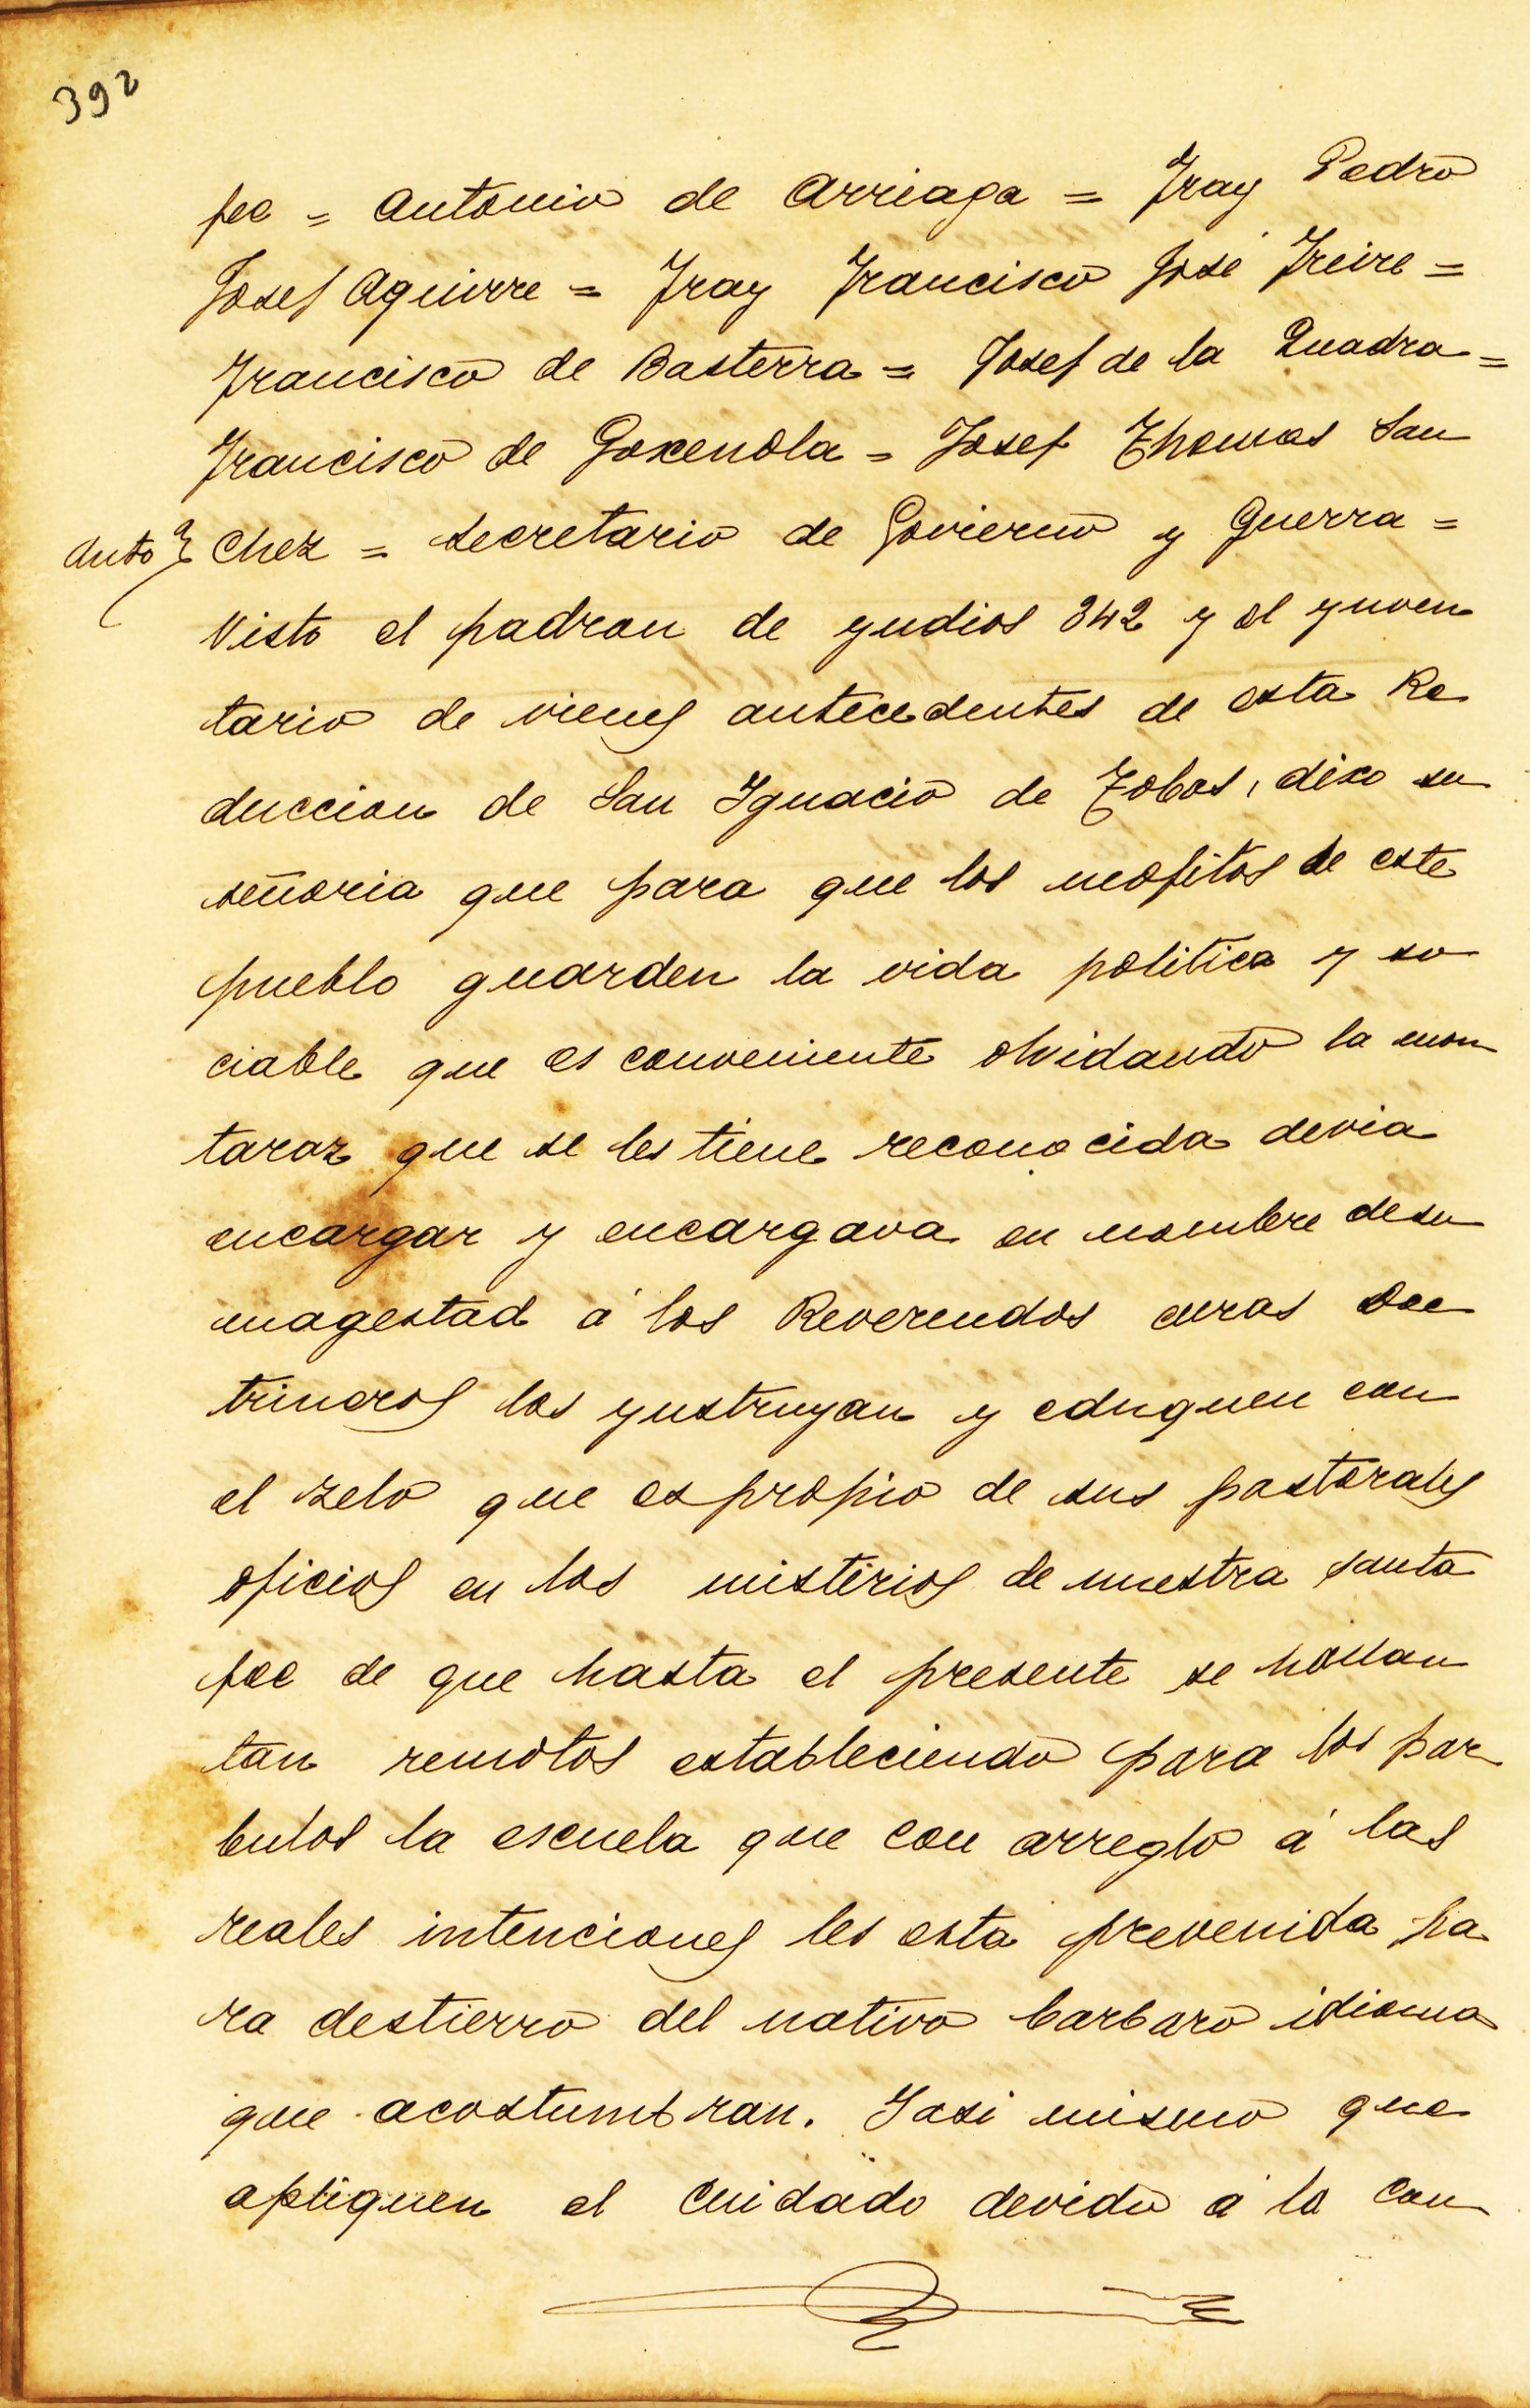 392
fee = Antonio de Arriaga = Fray Pedro
Josef Aguirre = Fray Francisco José Freire =
Francisco de Basterra = Josef de la Quadra =
Francisco de Goxenola = Josef Thomas San
Auto Chez = Secretario de Govierno y Guerra =
Visto el padron de yndios 342 y el ynven
tario de vienes antecedentes de esta Re
duccion de San Ygnacio de Tobas, dixo su
señoria que para que los neofitos de este
pueblo guarden la vida politica y so
ciable que es conveniente olvidando la mon
taraz que se les tiene reconocida devia
encargar y encargava en nombre de su
magestad á los Reverendos curas Doc
trineros los ynstruyan y eduquen con
el zelo que es propio de sus pastorales
oficios en los misterios de nuestra santa
fee de que hasta el presente se hallan
tan remotos estableciendo para los par
bulos la escuela que con arreglo á las
reales intenciones les esta prevenida pa
ra destierro del nativo barbaro idioma
que acostumbran. Yasi mismo que
apliquen el cuidado devido á la con